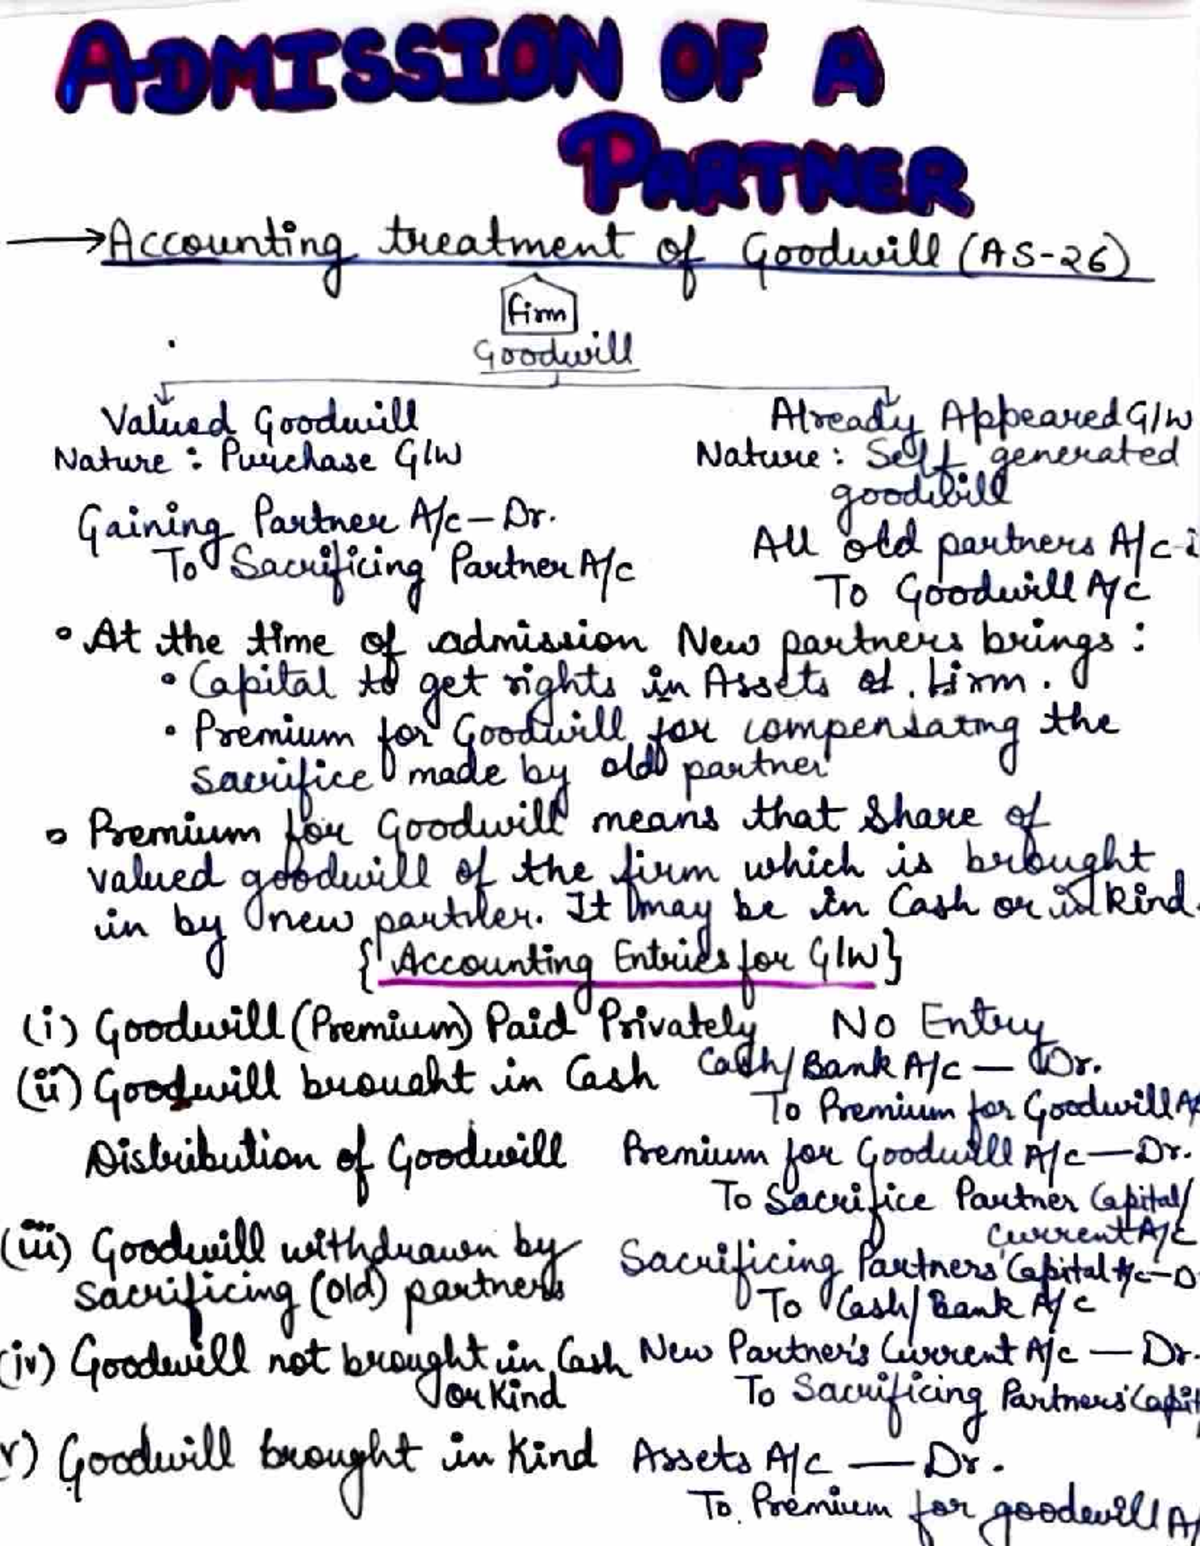 ADMISSION OF A
PARTNER
→Accounting treatment of Goodwill (AS-26)
firm
Goodwill
Valued Goodwill
Nature : Purchase G/W
Gaining Partner A/c – Dr.
To Sacrificing Partner A/c
Already Appeared G/W
Nature : Self generated
goodwill
All old partners A/c -
To Goodwill A/c
• At the time of admission New partners brings :
• Capital to get rights in Assets of firm.
• Premium for Goodwill for compensating the
sacrifice made by old partner
• Premium for Goodwill means that Share of
valued goodwill of the firm which is brought
in by new partner. It may be in Cash or in kind.
{ Accounting Entries for G/W }
(i) Goodwill (Premium) Paid Privately No Entry
(ii) Goodwill brought in Cash Cash/Bank A/c — Dr.
To Premium for Goodwill A
Distribution of Goodwill Premium for Goodwill A/c — Dr.
To Sacrifice Partner Capital/
Current A/c
(iii) Goodwill withdrawn by
sacrificing (old) partners
Sacrificing Partners' Capital A/c – D
To Cash/Bank A/c
(iv) Goodwill not brought in Cash New Partner's Current A/c — Dr.
or Kind To Sacrificing Partners' Capit
v) Goodwill brought in Kind Assets A/c — Dr.
To Premium for goodwill A/